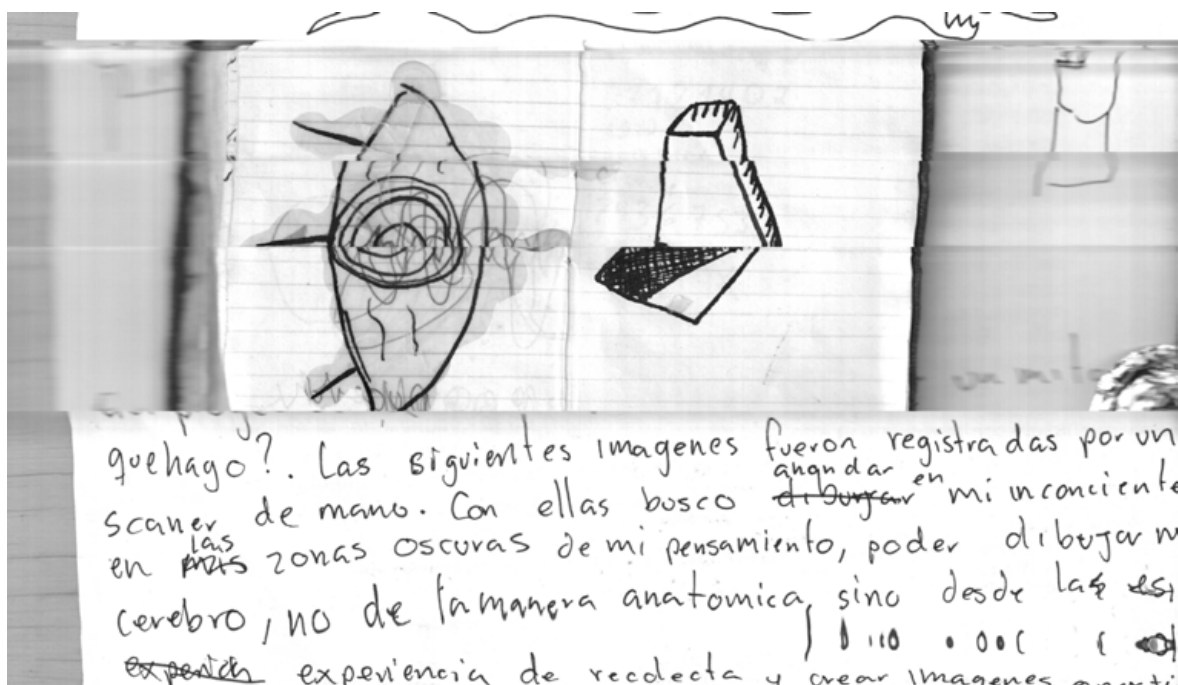 quehago?. Las siguientes imagenes fueron registradas por un
scaner de mano. Con ellas busco angndar dibujar en mi inconciente
en mis las zonas oscuras de mi pensamiento, poder dibujar m
cerebro, no de la manera anatomica, sino desde las es
experien experiencia de recolecta y crear imagenes